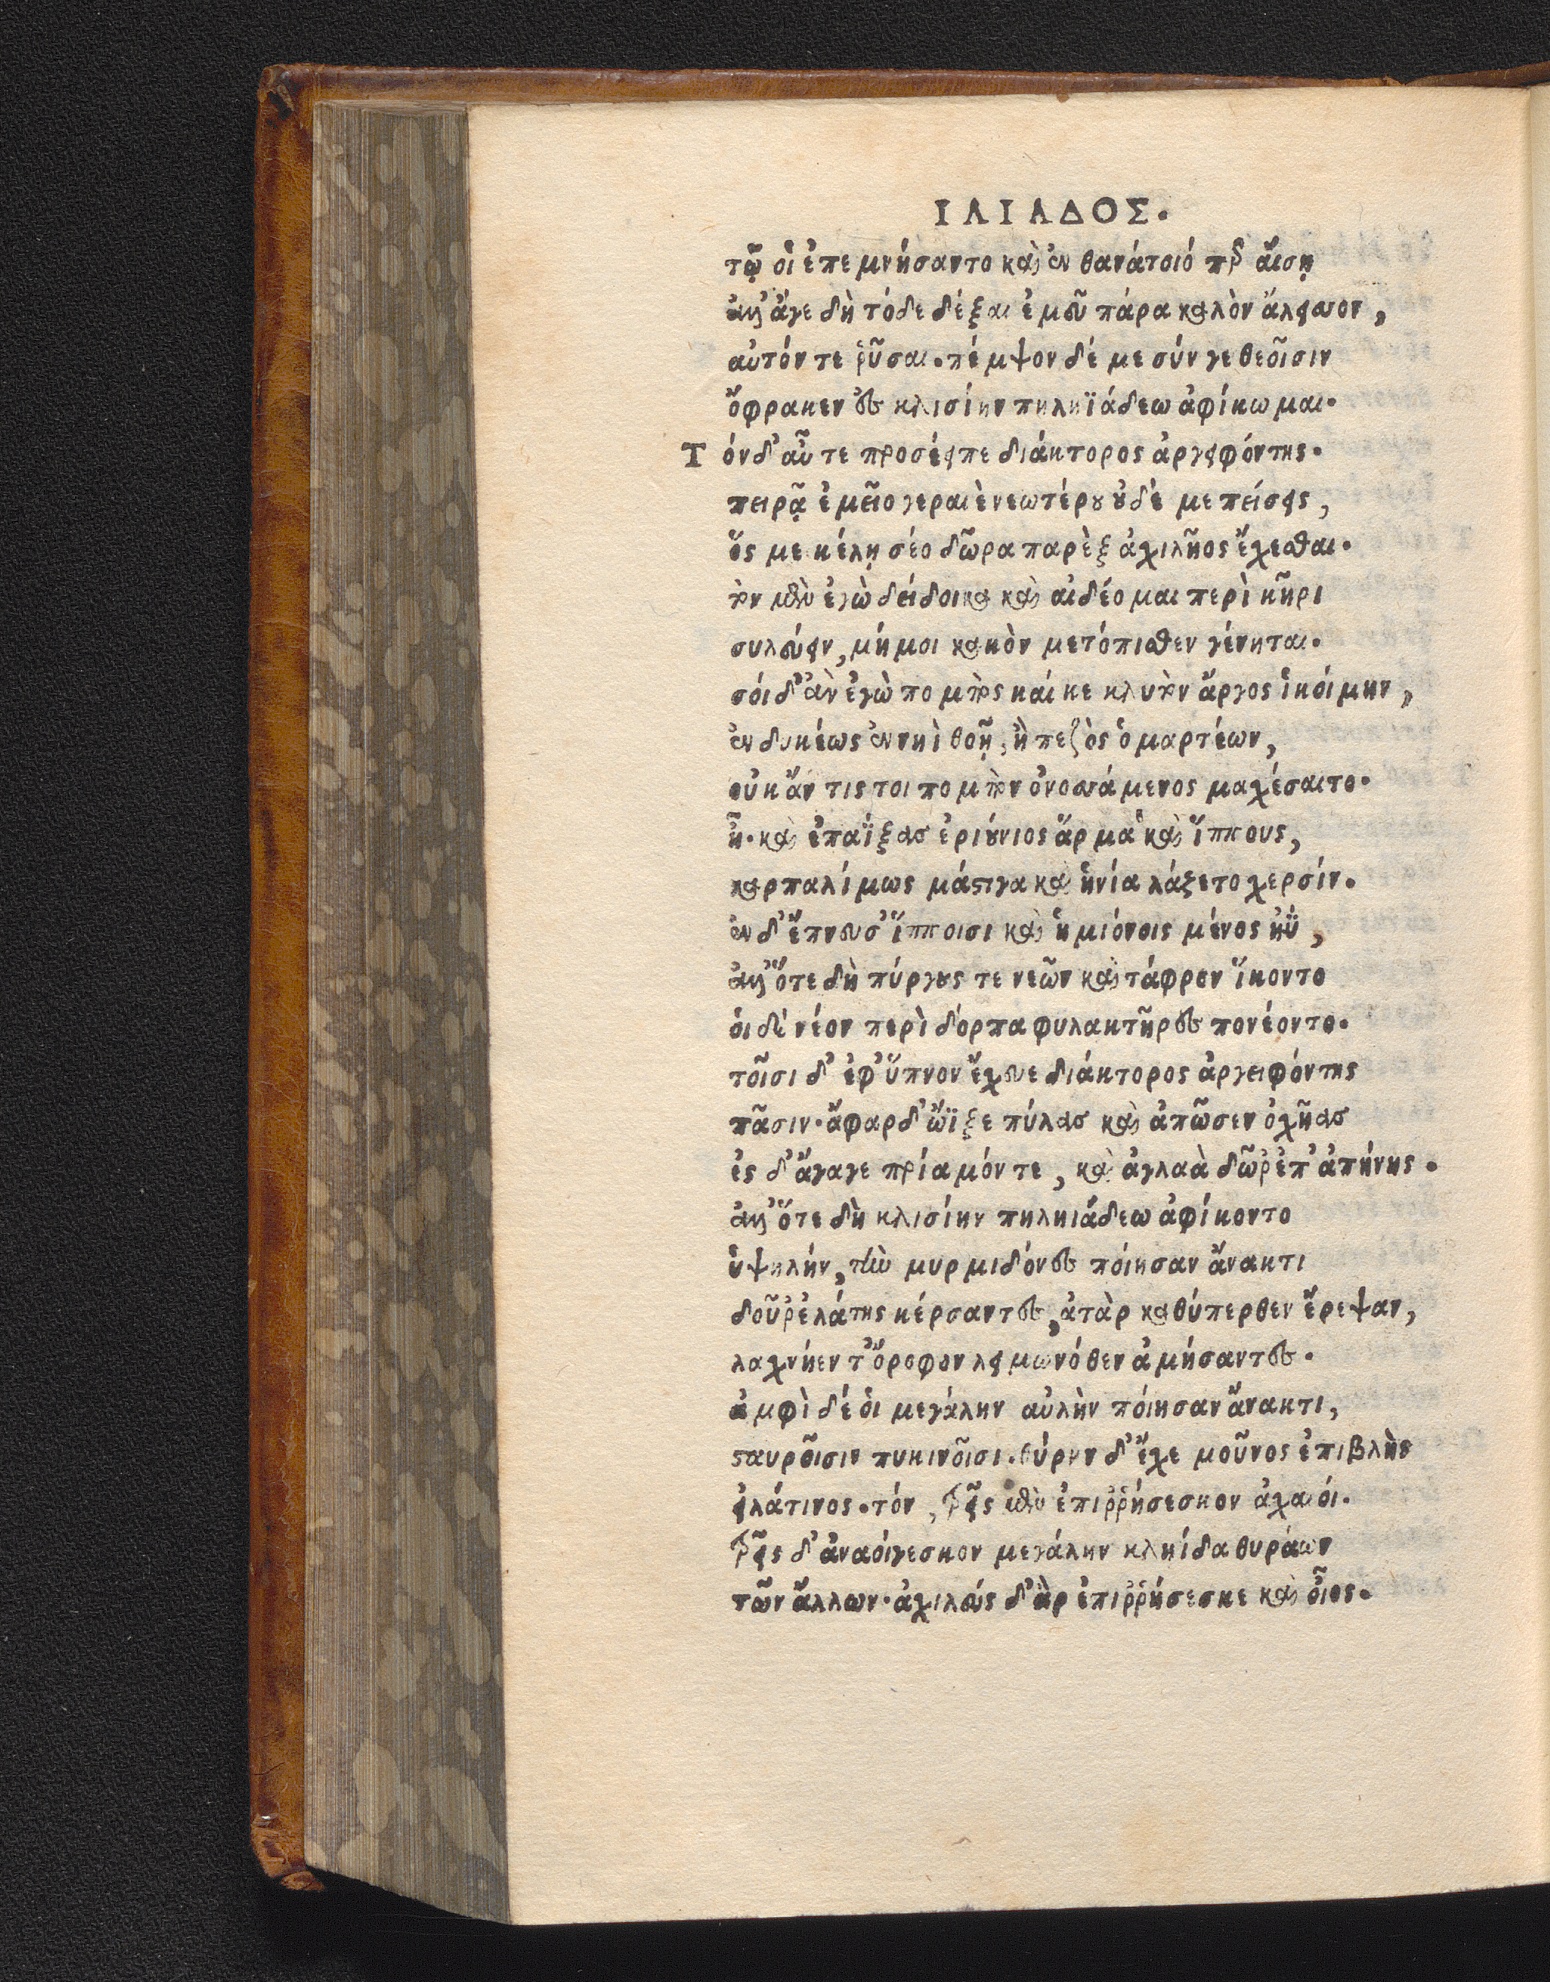 ΙΛΙΑΔΟΣ.
τῷ οἱ ἐπεμνήσαντο καὶ ἐν θανάτοιό περ αἴσῃ
ἀλλ' ἄγε δὴ τόδε δέξαι ἐμοῦ πάρα καλὸν ἄλεισον,
αὐτόν τε ῥῦσαι. πέμψον δέ με σύν γε θεοῖσιν
ὄφρα κεν ἐς κλισίην πηληϊάδεω ἀφίκωμαι.
Τόνδ' αὖτε προσέειπε διάκτορος ἀργειφόντης.
πειρᾷ ἐμεῖο γεραιὲ νεωτέρου οὐδέ με πείσεις,
ὅς με κέλῃ σέο δῶρα παρὲξ ἀχιλῆος ἔχεσθαι.
τὸν μὲν ἐγὼ δείδοικα καὶ αἰδέομαι περὶ κῆρι
συλεύειν, μή μοι κακὸν μετόπισθεν γένηται.
σόι δ' ἂν ἐγὼ πομπὸς καί κε κλυτὸν ἄργος ἱκοίμην,
ἐνδυκέως ἐν νηῒ θοῇ, ἢ πεζὸς ὁμαρτέων,
οὐκ ἄν τις τοι πομπὸν ὀνοσσάμενος μαχέσαιτο.
ἦ. καὶ ἐπαΐξας ἐριούνιος ἅρμα καὶ ἵππους,
καρπαλίμως μάστιγα καὶ ἡνία λάζετο χερσίν.
ἐν δ' ἔπνευσ' ἵπποισι καὶ ἡμιόνοις μένος ἠΰ,
ἀλλ' ὅτε δὴ πύργους τε νεῶν καὶ τάφρον ἵκοντο
ὁι δὲ νέον περὶ δόρπα φυλακτῆρες πονέοντο.
τοῖσι δ' ἐφ' ὕπνον ἔχευε διάκτορος ἀργειφόντης
πᾶσιν. ἄφαρ δ' ὤϊξε πύλας καὶ ἀπῶσεν ὀχῆας
ἐς δ' ἄγαγε πρίαμόν τε, καὶ ἀγλαὰ δῶρ' ἐπ' ἀπήνης.
ἀλλ' ὅτε δὴ κλισίην πηληιάδεω ἀφίκοντο
ὑψηλήν, τὴν μυρμιδόνες ποίησαν ἄνακτι
δοῦρ' ἐλάτης κέρσαντες, ἀτὰρ καθύπερθεν ἔρεψαν,
λαχνήεντ' ὄροφον λειμωνόθεν ἀμήσαντες.
ἀμφὶ δέ ὁι μεγάλην αὐλὴν πόιησαν ἄνακτι,
σταυροῖσιν πυκινοῖσι. θύρην δ' ἔχε μοῦνος ἐπιβλὴς
εἰλάτινος. τόν, τρεῖς μὲν ἐπιῤῥήσεσκον ἀχαιόι.
τρεῖς δ' ἀναοίγεσκον μεγάλην κληίδα θυράων
τῶν ἄλλων. ἀχιλεύς δ' ἂρ ἐπιῤῥήσεσκε καὶ οἶος.